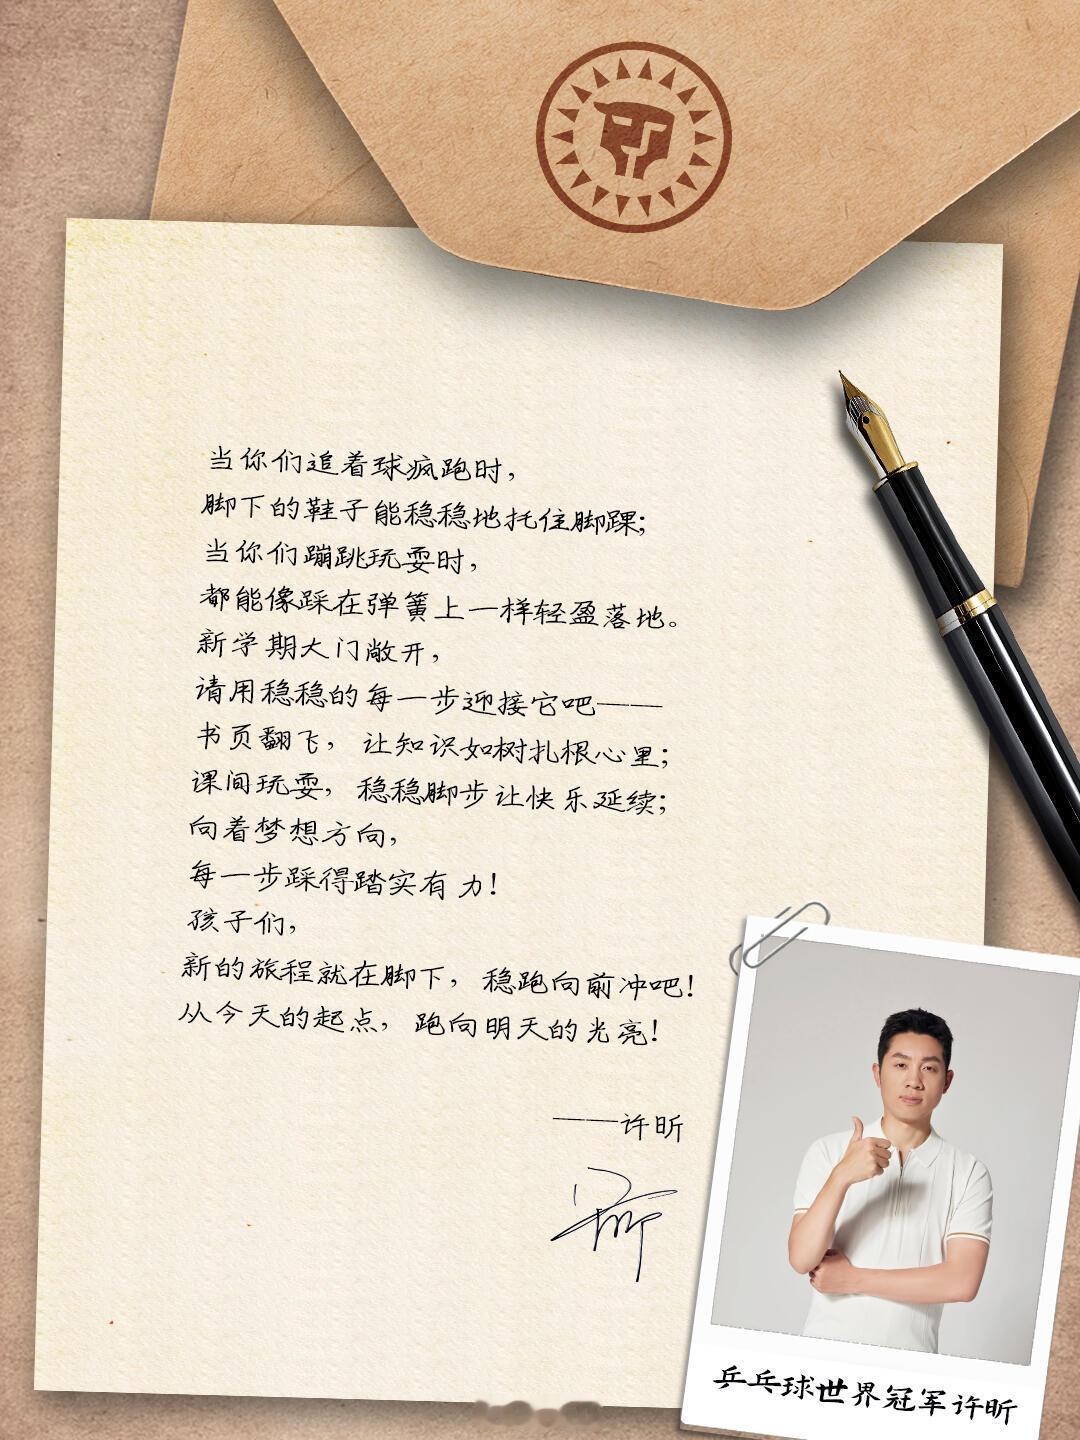 当你们追着球疯跑时，
脚下的鞋子能稳稳地托住脚踝；
当你们蹦跳玩耍时，
都能像踩在弹簧上一样轻盈落地。
新学期大门敞开，
请用稳稳的每一步迎接它吧——
书页翻飞，让知识如树扎根心里；
课间玩耍，稳稳脚步让快乐延续；
向着梦想方向，
每一步踩得踏实有力！
孩子们，
新的旅程就在脚下，稳跑向前冲吧！
从今天的起点，跑向明天的光亮！
——许昕
乒乓球世界冠军许昕